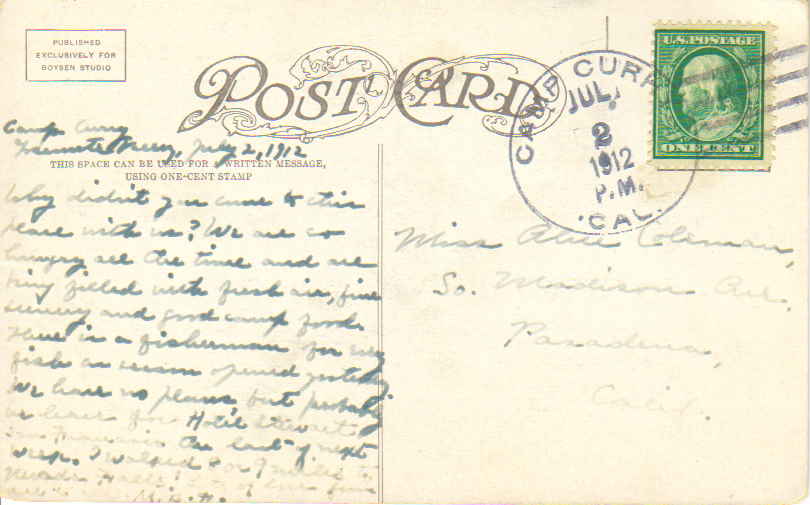 PUBLISHED
EXCLUSIVELY FOR
BOYSEN STUDIO
POST CARD
CAMP CURR
JUL
2
1912
P.M.
CAL.
U.S. POSTAGE
ONE CENT
Camp Curry
Yosemite July 2, 1912
THIS SPACE CAN BE USED FOR A WRITTEN MESSAGE,
USING ONE-CENT STAMP
Why didn't you come to this
place with us? We are so
hungry all the time and are
being filled with fresh air, fine
scenery and good camp food.
There is a fisherman for every
fish as season opened yesterday.
We have no plans but probably
be leave for Hotel Stewart
San Francisco the last of next
week. I walked 8 or 9 miles to
Nevada Falls
Miss Alice Coleman,
So. Madison Ave.
Pasadena,
Calif.